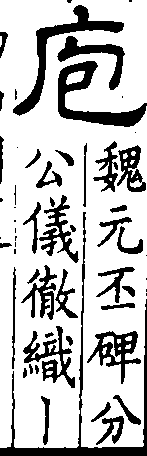 庖
魏元丕碑分
公儀徹織丨